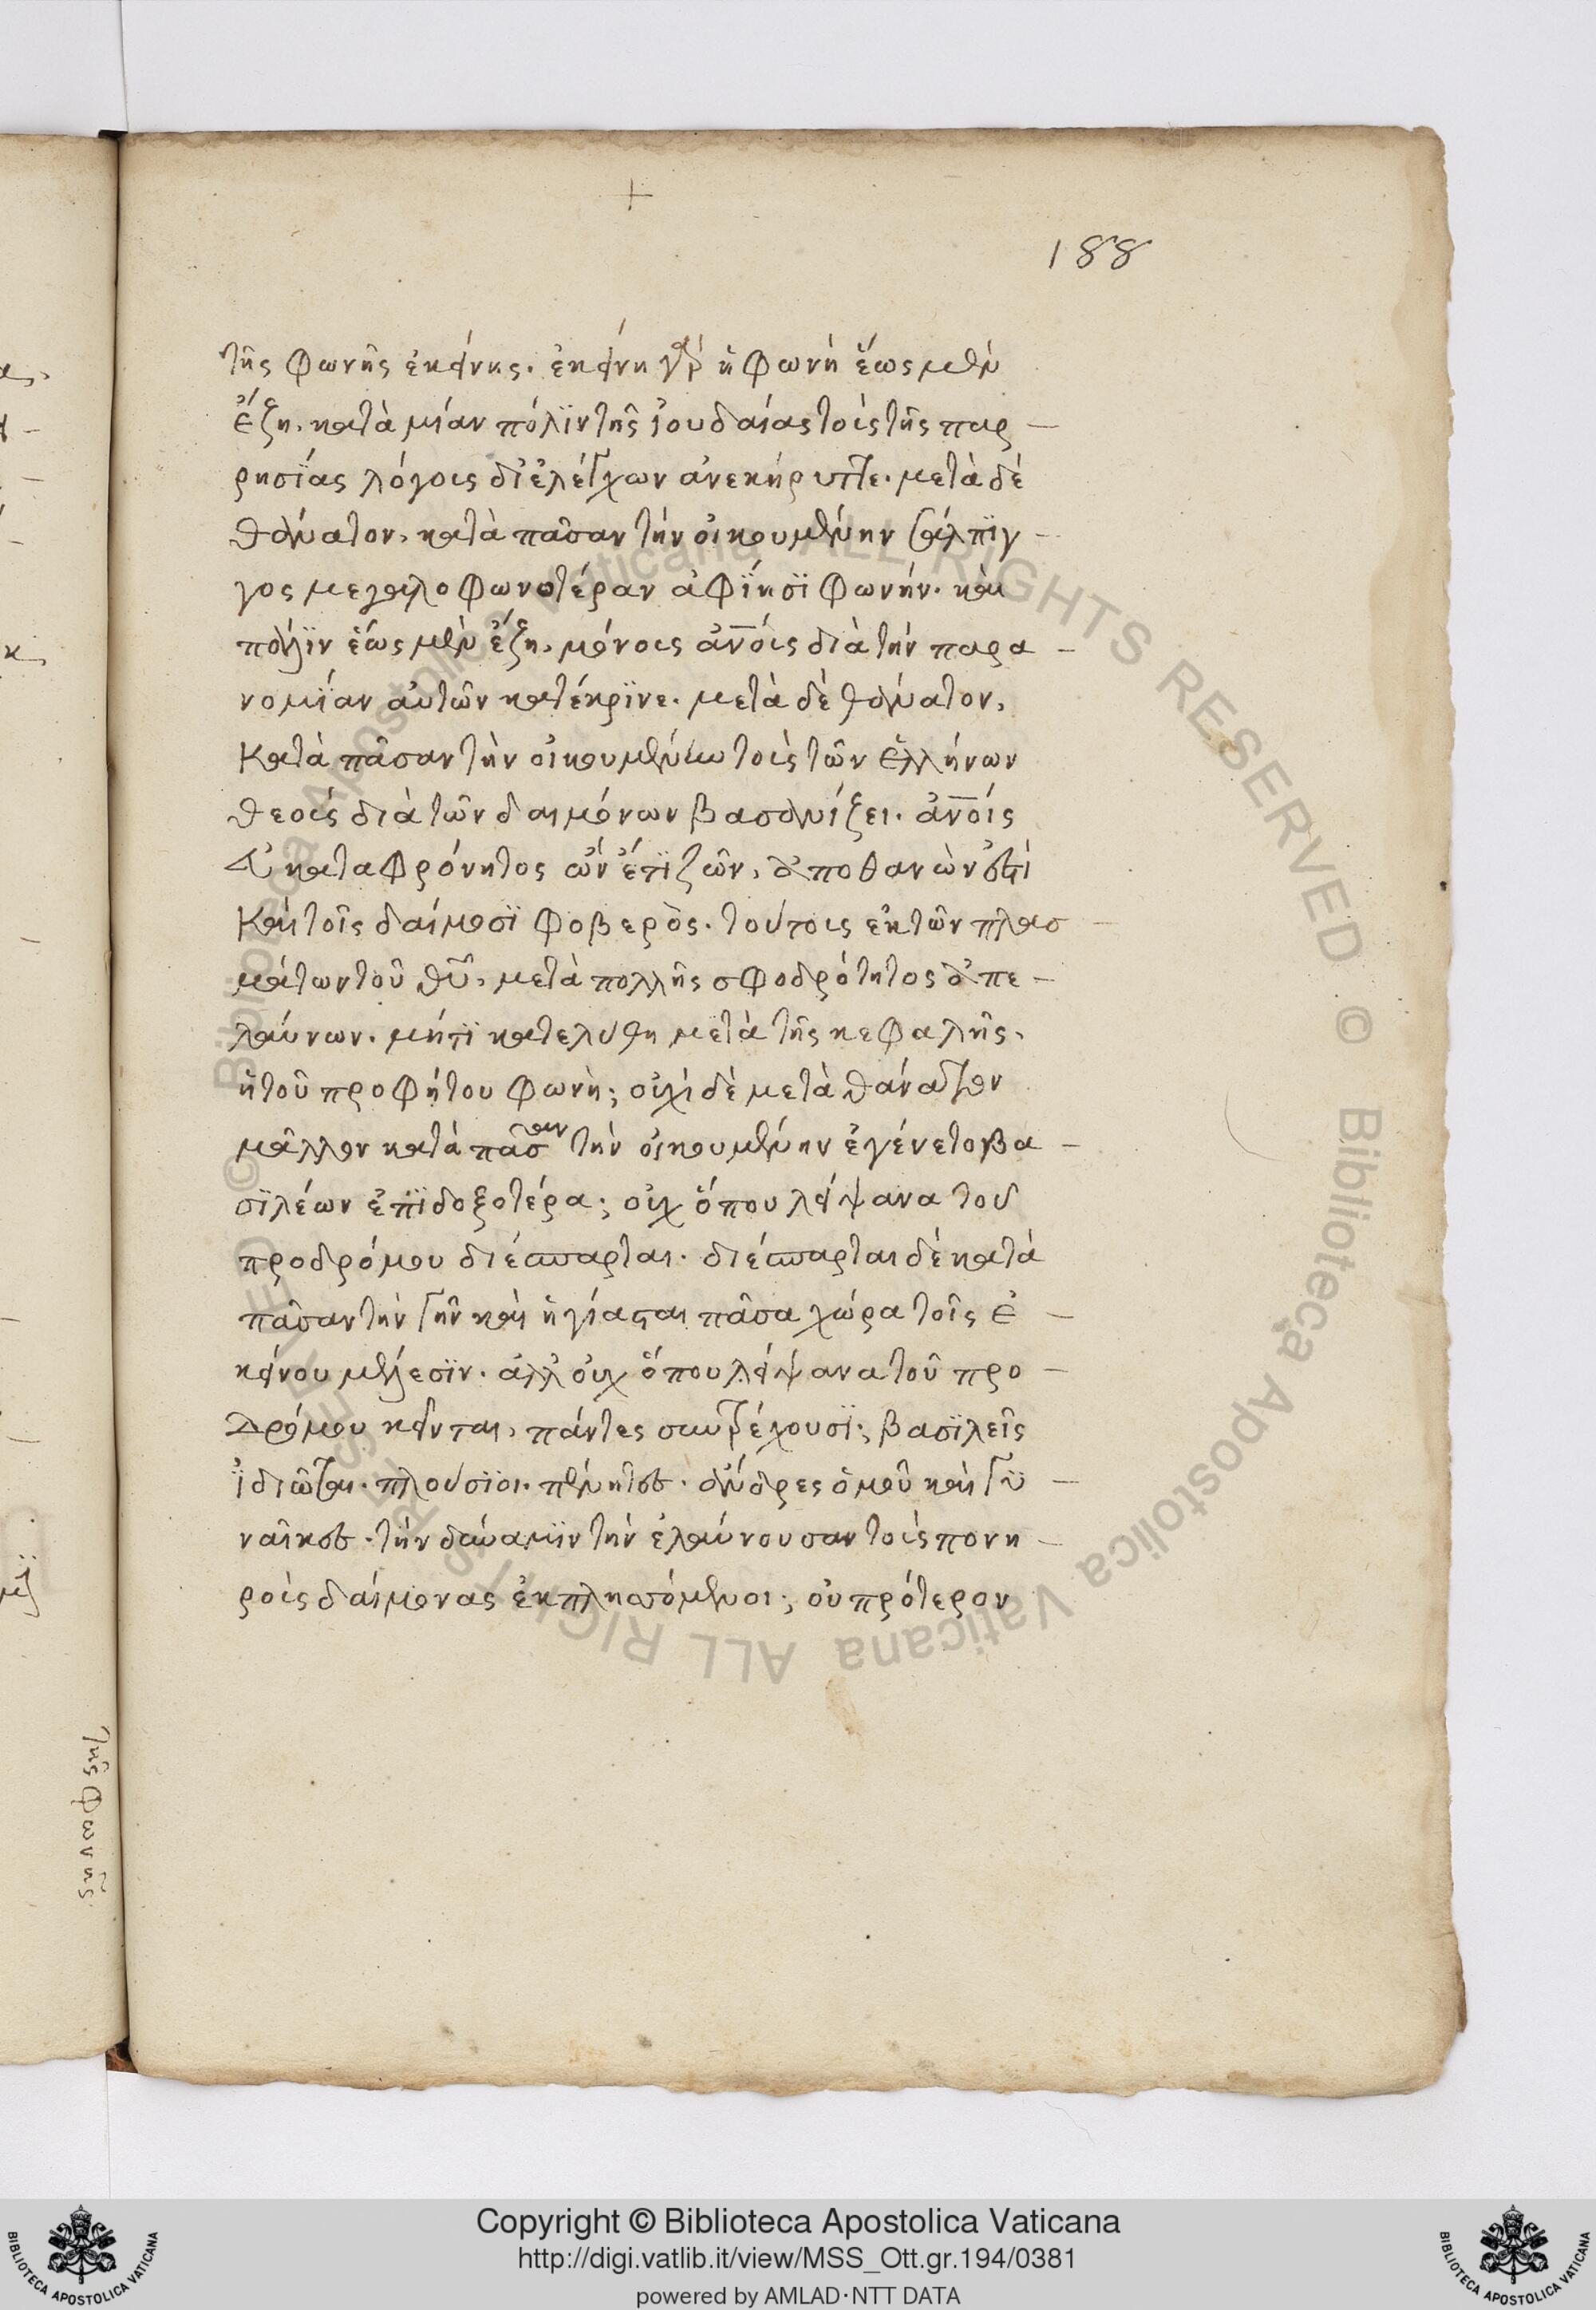 188
τῆς φωνῆς ἐκείνης. ἐκείνη γὰρ ἡ φωνὴ ἕως μὲν
ἔζη, κατὰ μίαν πόλϊν τῆς ἰουδαίας τοὶς τῆς παρ
ρησΐας λόγοις δἰ ἐλέγχων ἀνεκήρυττε. μετὰ δὲ
θάνατον, κατὰ πᾶσαν τὴν οἰκουμένην σάλπϊγ
γος μεγαλοφωνοτέραν ἀφΐησϊ φωνήν. καὶ
πάλϊν ἕως μὲν ἔζη, μόνοις ἀν̅οὶς διὰ τὴν παρα
νομΐαν αὐτῶν κατέκρϊνε. μετὰ δὲ θάνατον,
Κατὰ πᾶσαν τὴν οἰκουμένην τοὶς τῶν ἑλλήνων
θεοὶς διὰ τῶν δαιμόνων βασανίζει. ἀν̅οίς
εὐκαταφρόνητος ὢν ἔτϊ ζῶν, ἀποθανὼν ἐστὶ
Καὶ τοῖς δαίμοσϊ φοβερὸς. τούτοις ἐκ τῶν πλασ
μάτων τοῦ θυ̅, μετὰ πολλῆς σφοδρότητος ἀπε
λαύνων. μήτϊ κατελύθη μετὰ τῆς κεφαλῆς,
ἡ τοῦ προφήτου φωνὴ; οὐχὶ δὲ μετὰ θάνατον
μᾶλλον κατὰ πᾶσαν τὴν οἰκουμένην ἐγένετο βα
σϊλέων ἐπϊδοξοτέρα; οὐχ ὅπου λείψανα τοῦ
προδρόμου διέσπαρται. διέσπαρται δὲ κατὰ
πᾶσαν τὴν γῆν καὶ ἡγίασται πᾶσα χώρα τοῖς ἐ
κείνου μέλεσϊν. ἀλλ οὐχ ὅπου λείψανα τοῦ προ
Δρόμου κεῖνται, πάντες συντρέχουσϊ; βασϊλεῖς
ϊδιῶται. πλούσϊοι. πένητες. ἄνδρες ὁμοῦ καὶ γϋ
ναῖκες. τὴν δύναμϊν τὴν ἐλαύνουσαν τοὶς πονη
ροὶς δαίμονας ἐκπλησσόμενοι; οὐ πρότερον
τῆς φωνῆς
Copyright © Biblioteca Apostolica Vaticana
http://digi.vatlib.it/view/MSS_Ott.gr.194/0381
powered by AMLAD·NTT DATA